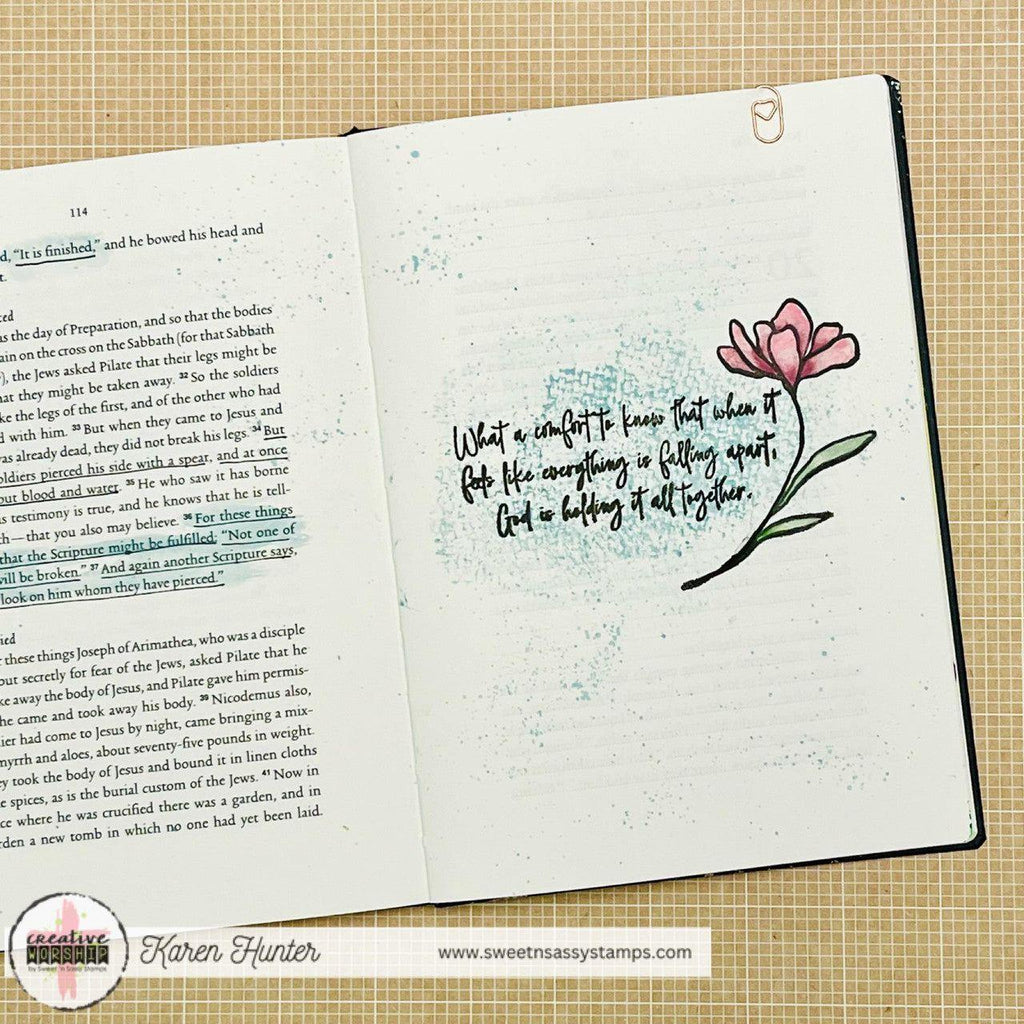 114
d, "It is finished," and he bowed his head and
t.
as the day of Preparation, and so that the bodies
ain on the cross on the Sabbath (for that Sabbath
), the Jews asked Pilate that their legs might be
hat they might be taken away. 32 So the soldiers
ke the legs of the first, and of the other who had
d with him. 33 But when they came to Jesus and
as already dead, they did not break his legs. 34 But
oldiers pierced his side with a spear, and at once
out blood and water. 35 He who saw it has borne
s testimony is true, and he knows that he is tell-
th—that you also may believe. 36 For these things
that the Scripture might be fulfilled: "Not one of
will be broken." 37 And again another Scripture says,
look on him whom they have pierced."
ied
r these things Joseph of Arimathea, who was a disciple
but secretly for fear of the Jews, asked Pilate that he
ke away the body of Jesus, and Pilate gave him permis-
he came and took away his body. 39 Nicodemus also,
lier had come to Jesus by night, came bringing a mix-
myrrh and aloes, about seventy-five pounds in weight.
ey took the body of Jesus and bound it in linen cloths
e spices, as is the burial custom of the Jews. 41 Now in
ce where he was crucified there was a garden, and in
rden a new tomb in which no one had yet been laid.
What a comfort to know that when it
feels like everything is falling apart,
God is holding it all together.
creative
WORSHIP
by Sweet 'n Sassy Stamps
Karen Hunter
www.sweetnsassystamps.com